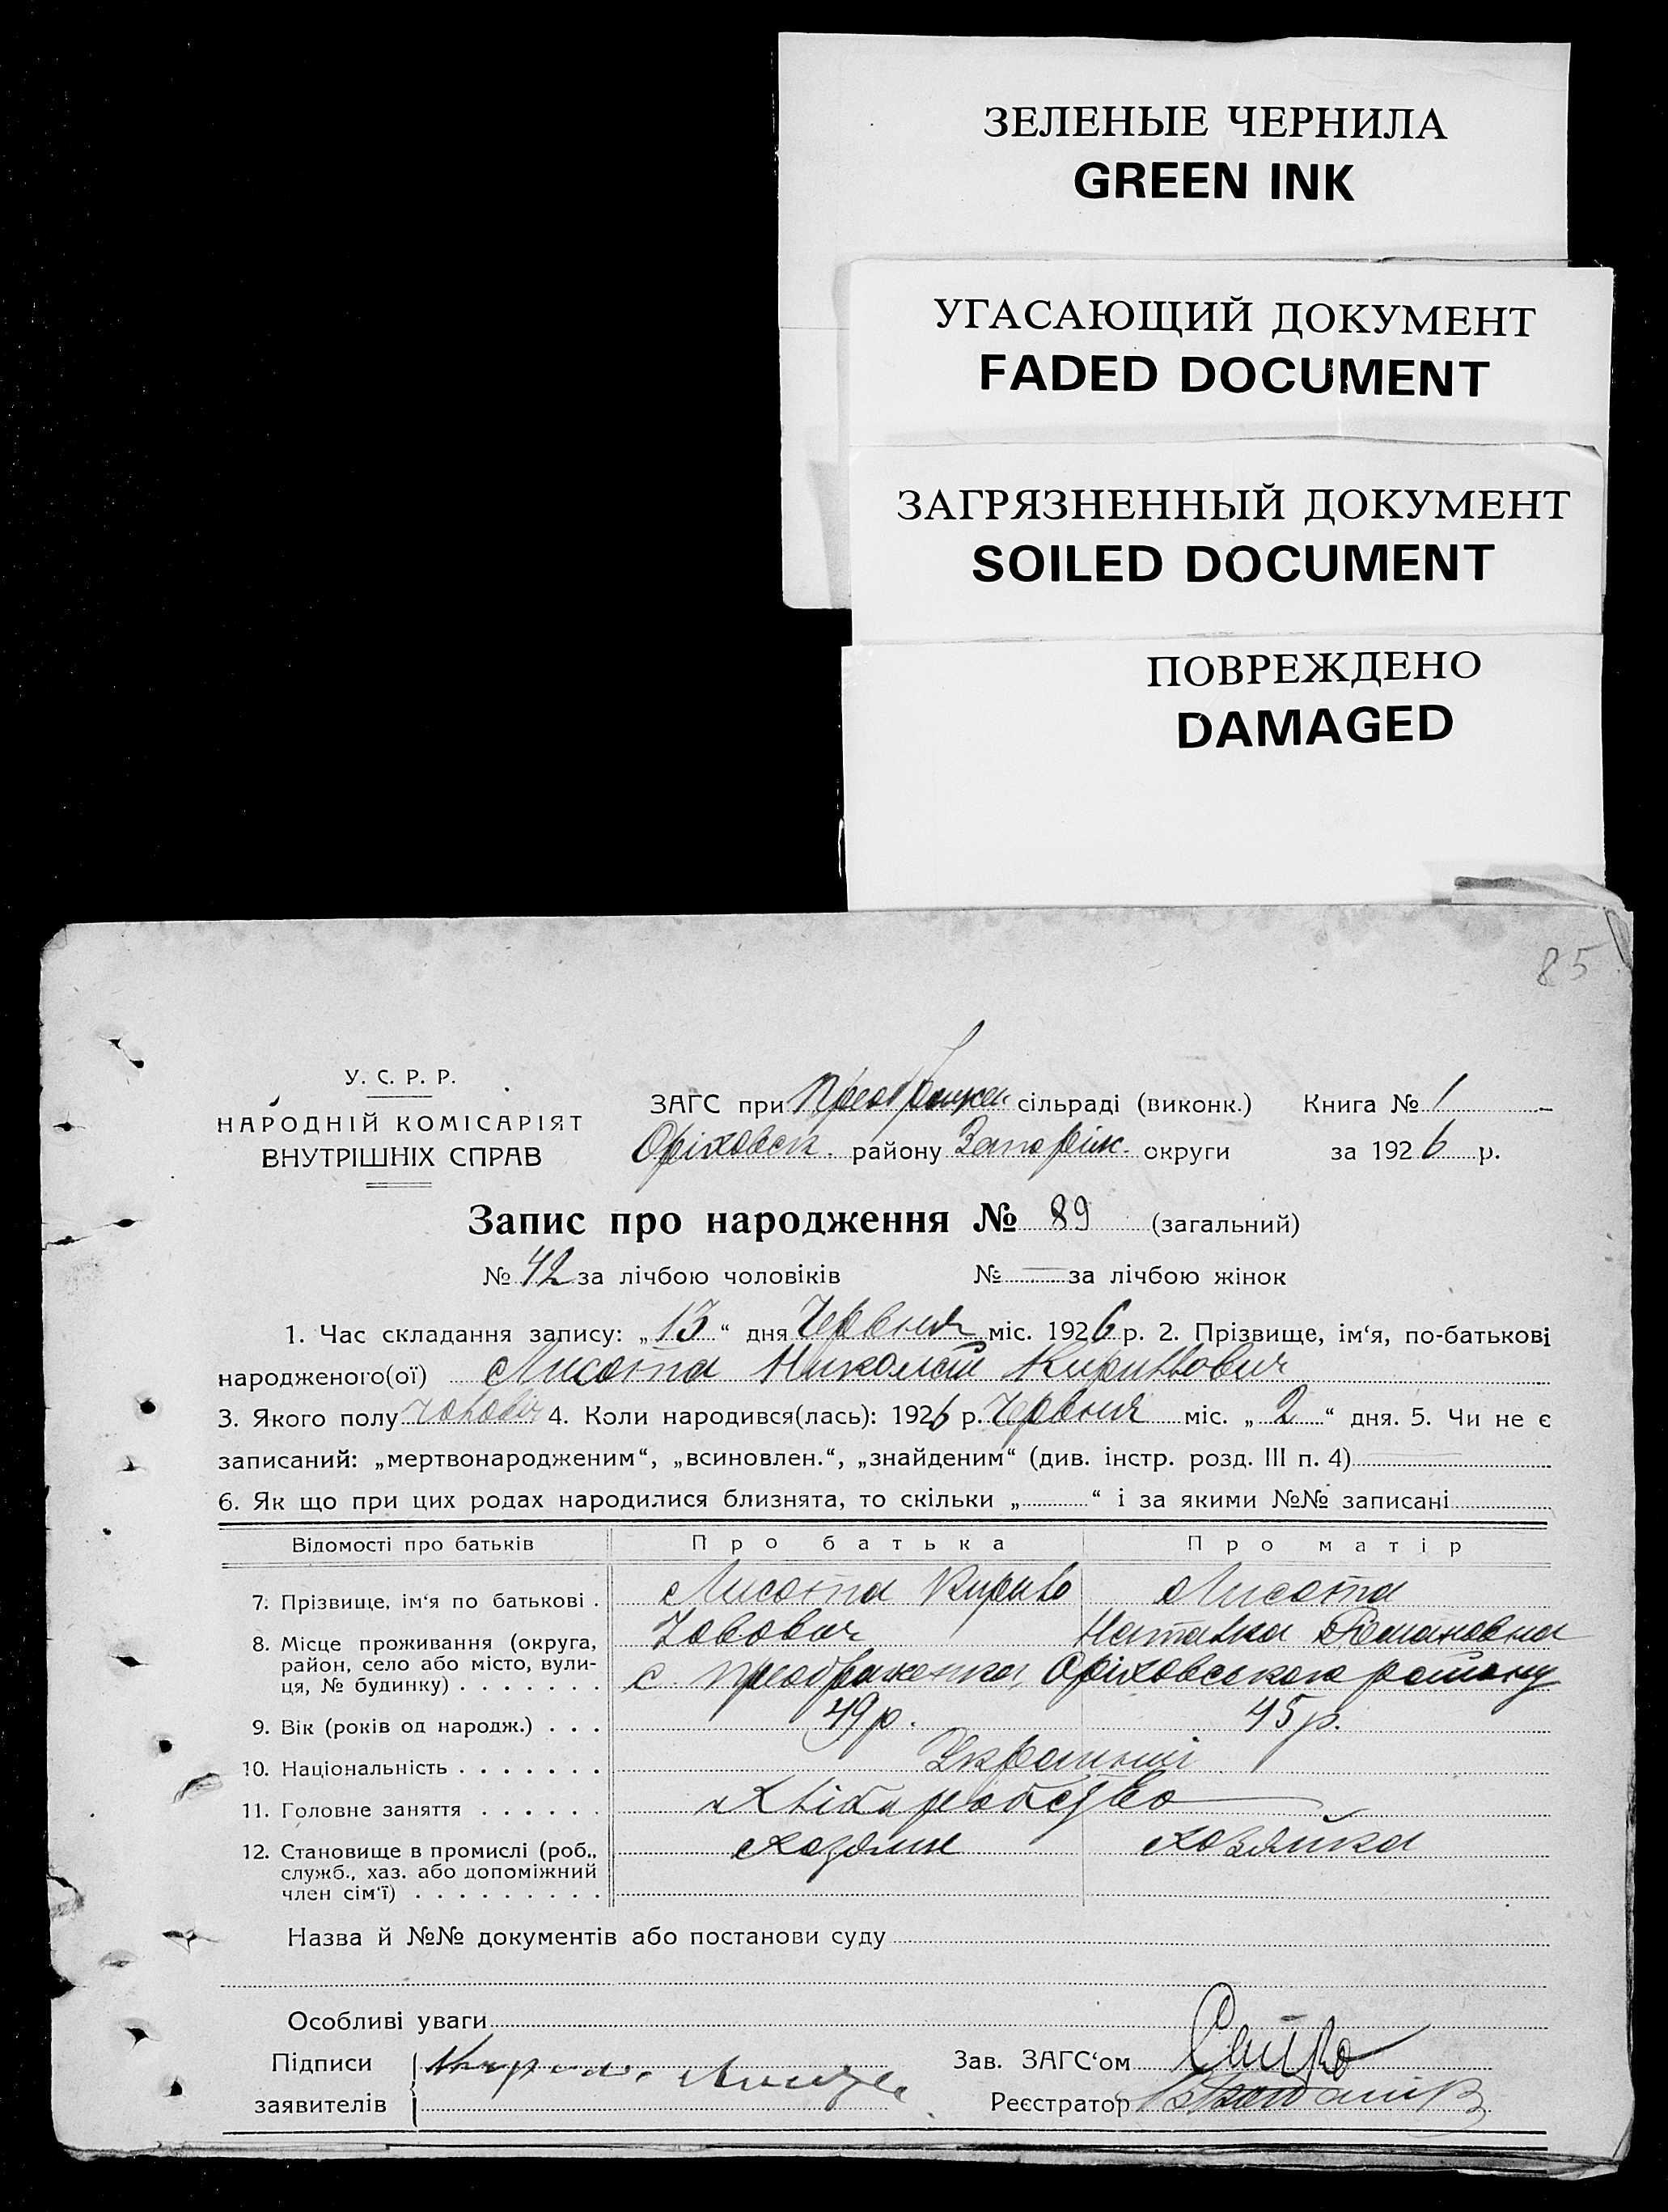 ЗЕЛЕНЫЕ ЧЕРНИЛА
GREEN INK
УГАСАЮЩИЙ ДОКУМЕНТ
FADED DOCUMENT
ЗАГРЯЗНЕННЫЙ ДОКУМЕНТ
SOILED DOCUMENT
ПОВРЕЖДЕНО
DAMAGED
85
У. С. Р. Р.
НАРОДНІЙ КОМІСАРІЯТ
ВНУТРІШНІХ СПРАВ
ЗАГС при Преображен сільраді (виконк.) Книга № 1
Оріховск. району Запоріж. округи за 1926 р.
Запис про народження № 89 (загальний)
№ 42 за лічбою чоловіків № — за лічбою жінок
1. Час складання запису: „13“ дня Червня міс. 1926 р. 2. Прізвище, ім‘я, по-батькові
народженого(ої) Лисота Николай Кирилович
3. Якого полу чоловіч 4. Коли народився(лась): 1926 р. Червня міс. „2“ дня. 5. Чи не є
записаний: „мертвонародженим“, „всиновлен.“, „знайденим“ (див. інстр. розд. III п. 4)
6. Як що при цих родах народилися близнята, то скільки „ “ і за якими №№ записані
Відомості про батьків Про батька Про матір
7. Прізвище, ім‘я по батькові . Лисота Кирило Лисота
8. Місце проживання (округа, Наталка Романовна
район, село або місто, вули-
ця, № будинку) . . . . . . . с. Преображенка, Оріховського району
9. Вік (років од народж.) . . . 49 р. 45 р.
10. Національність . . . . . . . Українці
11. Головне заняття . . . . . . Хліборобство
12. Становище в промислі (роб., Хозяин Хозяйка
служб., хаз. або допоміжний
член сім‘ї) . . . . . . . . .
Назва й №№ документів або постанови суду
Особливі уваги
Підписи Зав. ЗАГС‘ом
заявителів Реєстратор